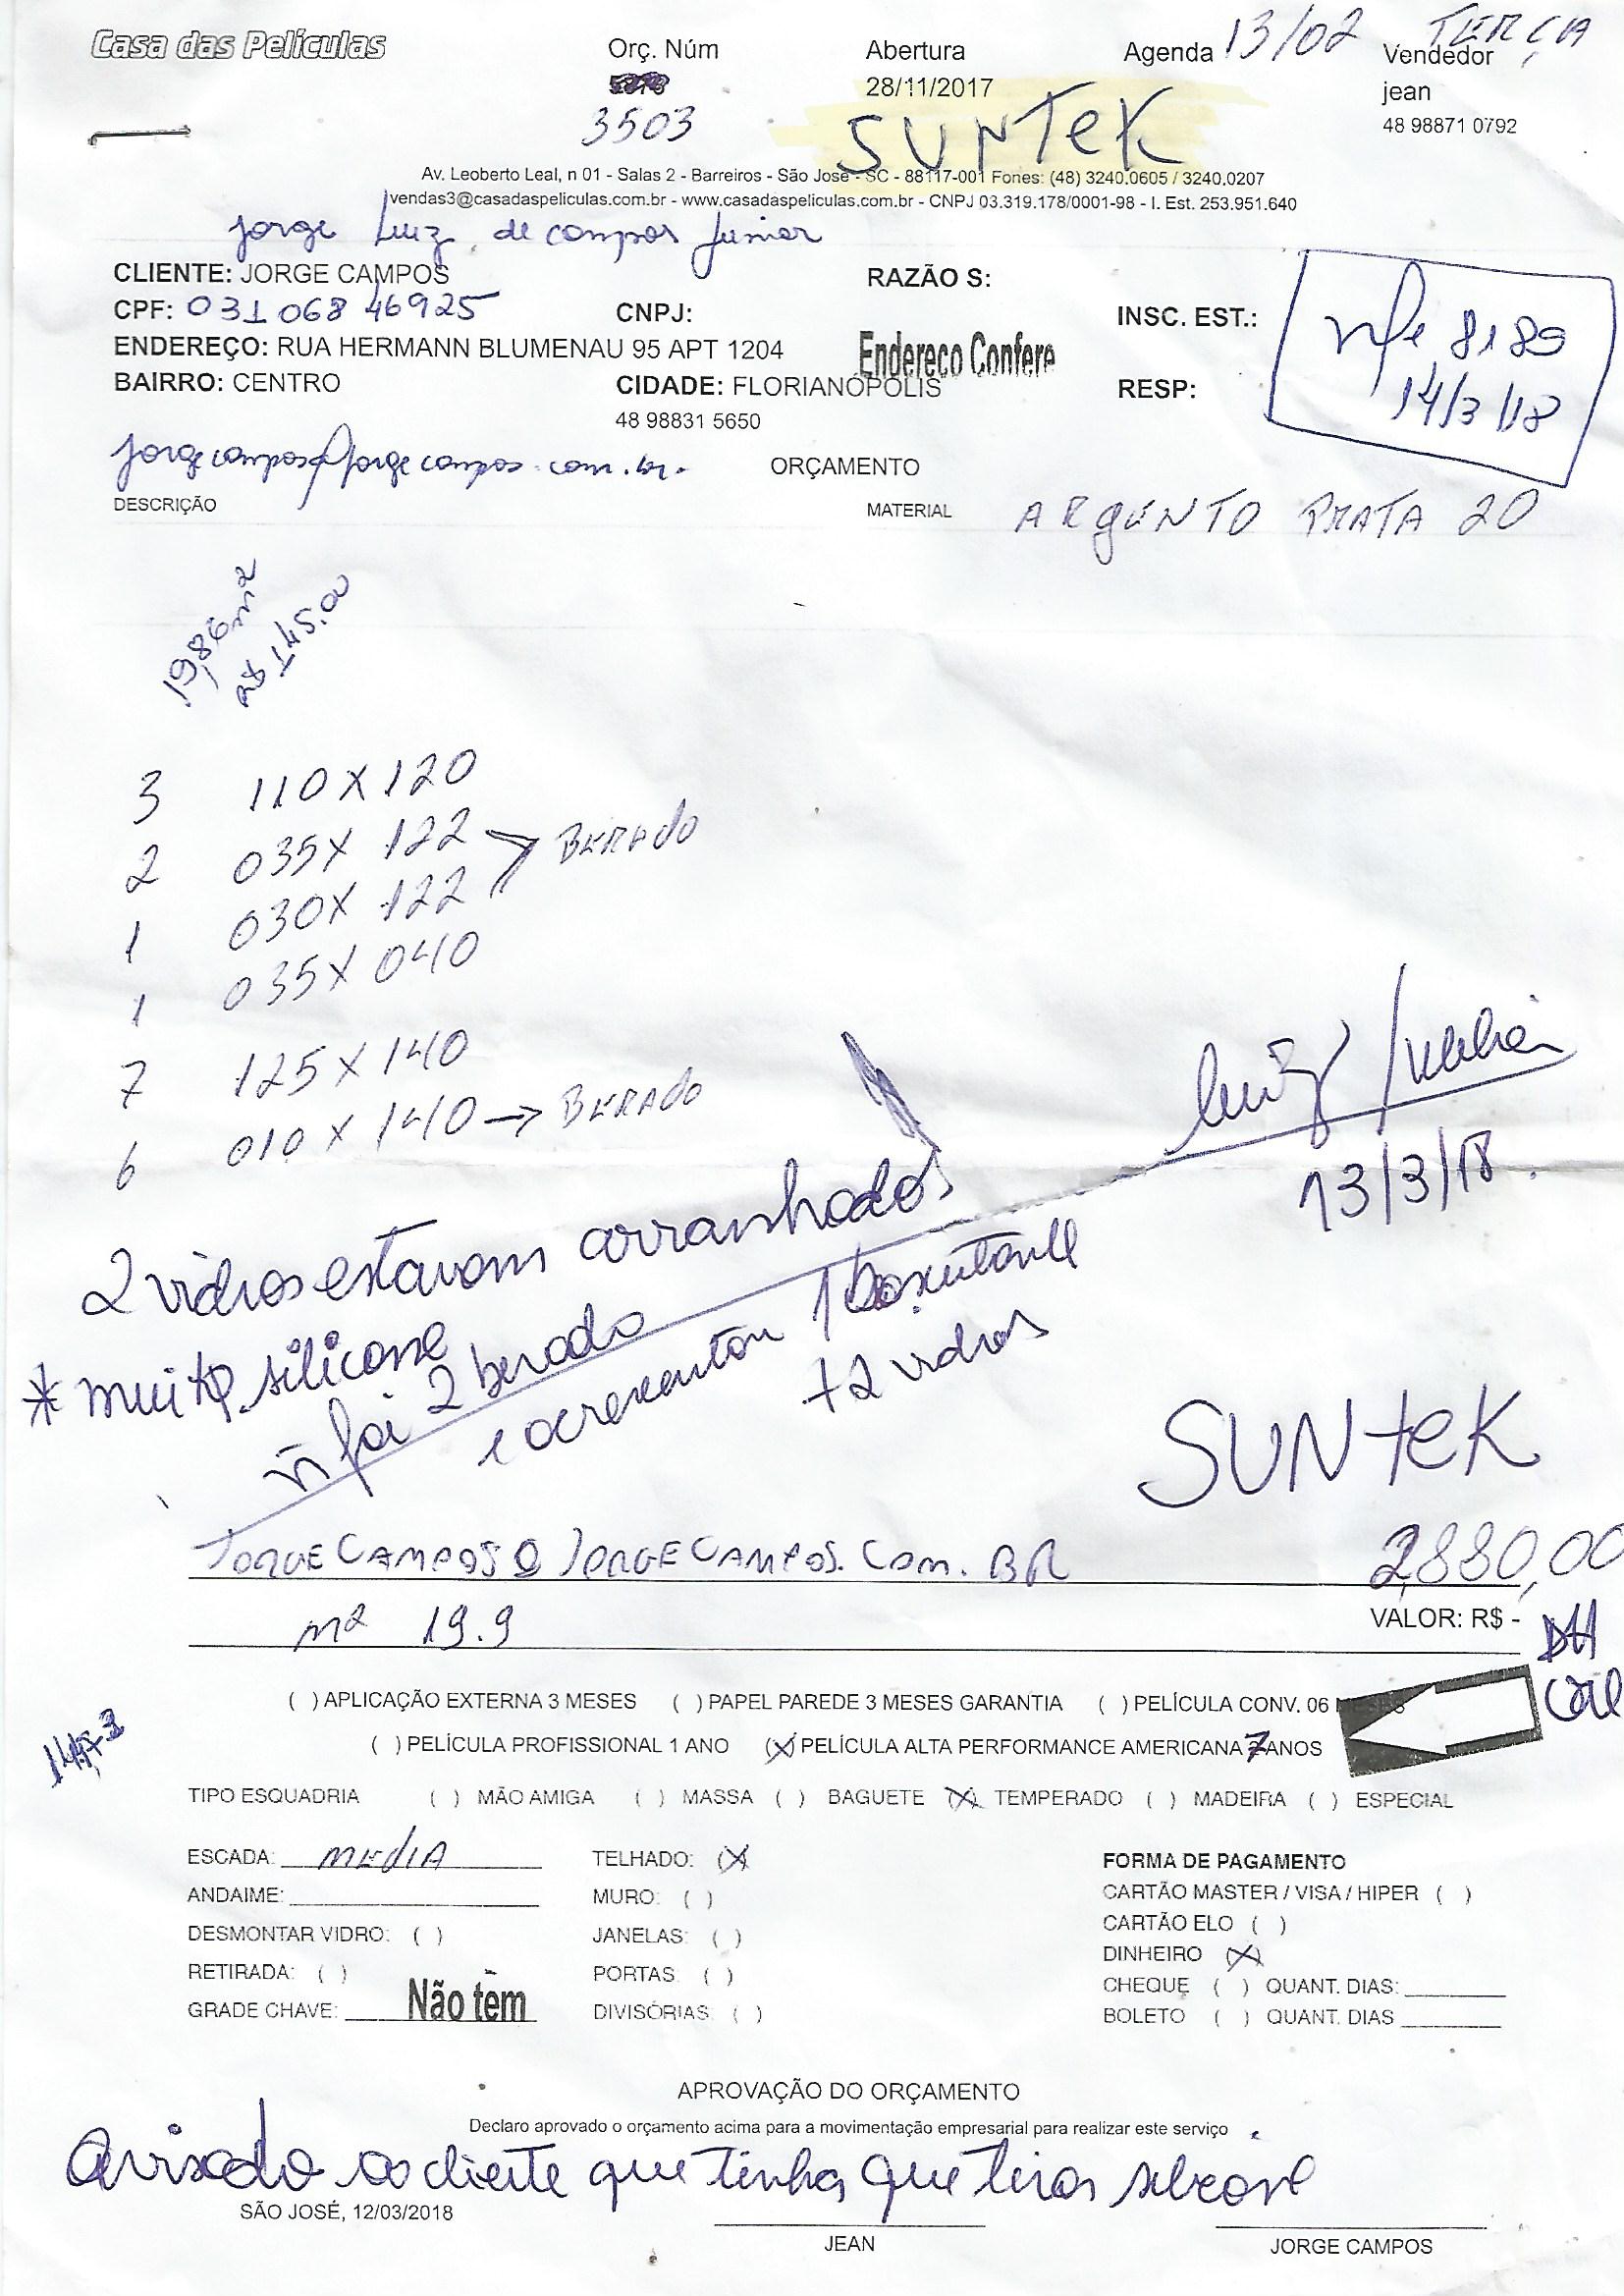 Casa das Películas
Orç. Núm
Abertura
Agenda 13/02 TERÇA
Vendedor
28/11/2017
jean
3503
SUNTEK
48 98871 0792
Av. Leoberto Leal, n 01 - Salas 2 - Barreiros - São José - SC - 88117-001 Fones: (48) 3240.0605 / 3240.0207
vendas3@casadaspeliculas.com.br - www.casadaspeliculas.com.br - CNPJ 03.319.178/0001-98 - I. Est. 253.951.640
Jorge Luiz de campos Junior
CLIENTE: JORGE CAMPOS
RAZÃO S:
CPF: 031 068 46925
CNPJ:
INSC. EST.:
nfe 8189
ENDEREÇO: RUA HERMANN BLUMENAU 95 APT 1204
Endereço Confere
BAIRRO: CENTRO
CIDADE: FLORIANÓPOLIS
RESP:
14/3/18
48 98831 5650
jorgecampos@jorgecampos.com.br.
ORÇAMENTO
DESCRIÇÃO
MATERIAL ARGENTO PRATA 20
19,86m²
R$ 145.00
3 110 X 120
2 035 X 122
BERADO
1 030 X 122
1 035 X 040
7 125 X 140
6 010 X 140 → BERADO
Luiz
13/3/18.
2 vidros estavam arranhados
* muito silicone
ñ foi 2 berado
e acrescentou 1
+2 vidros
SUNTEK
JORGECAMPOS@JORGECAMPOS.COM.BR
2,880,00
m² 19.9
VALOR: R$ -
DH
( ) APLICAÇÃO EXTERNA 3 MESES ( ) PAPEL PAREDE 3 MESES GARANTIA ( ) PELÍCULA CONV. 06
( ) PELÍCULA PROFISSIONAL 1 ANO (X) PELÍCULA ALTA PERFORMANCE AMERICANA 7 ANOS
TIPO ESQUADRIA ( ) MÃO AMIGA ( ) MASSA ( ) BAGUETE (X) TEMPERADO ( ) MADEIRA ( ) ESPECIAL
ESCADA: MEDIA
TELHADO: (X)
FORMA DE PAGAMENTO
ANDAIME:
MURO: ( )
CARTÃO MASTER / VISA / HIPER ( )
DESMONTAR VIDRO: ( )
JANELAS: ( )
CARTÃO ELO ( )
DINHEIRO (X)
RETIRADA: ( )
PORTAS ( )
CHEQUE ( ) QUANT. DIAS:
GRADE CHAVE: Não tem
DIVISÓRIAS ( )
BOLETO ( ) QUANT. DIAS
APROVAÇÃO DO ORÇAMENTO
Declaro aprovado o orçamento acima para a movimentação empresarial para realizar este serviço
avisado ao cliente que tinha que tirar
SÃO JOSÉ, 12/03/2018
JEAN
JORGE CAMPOS